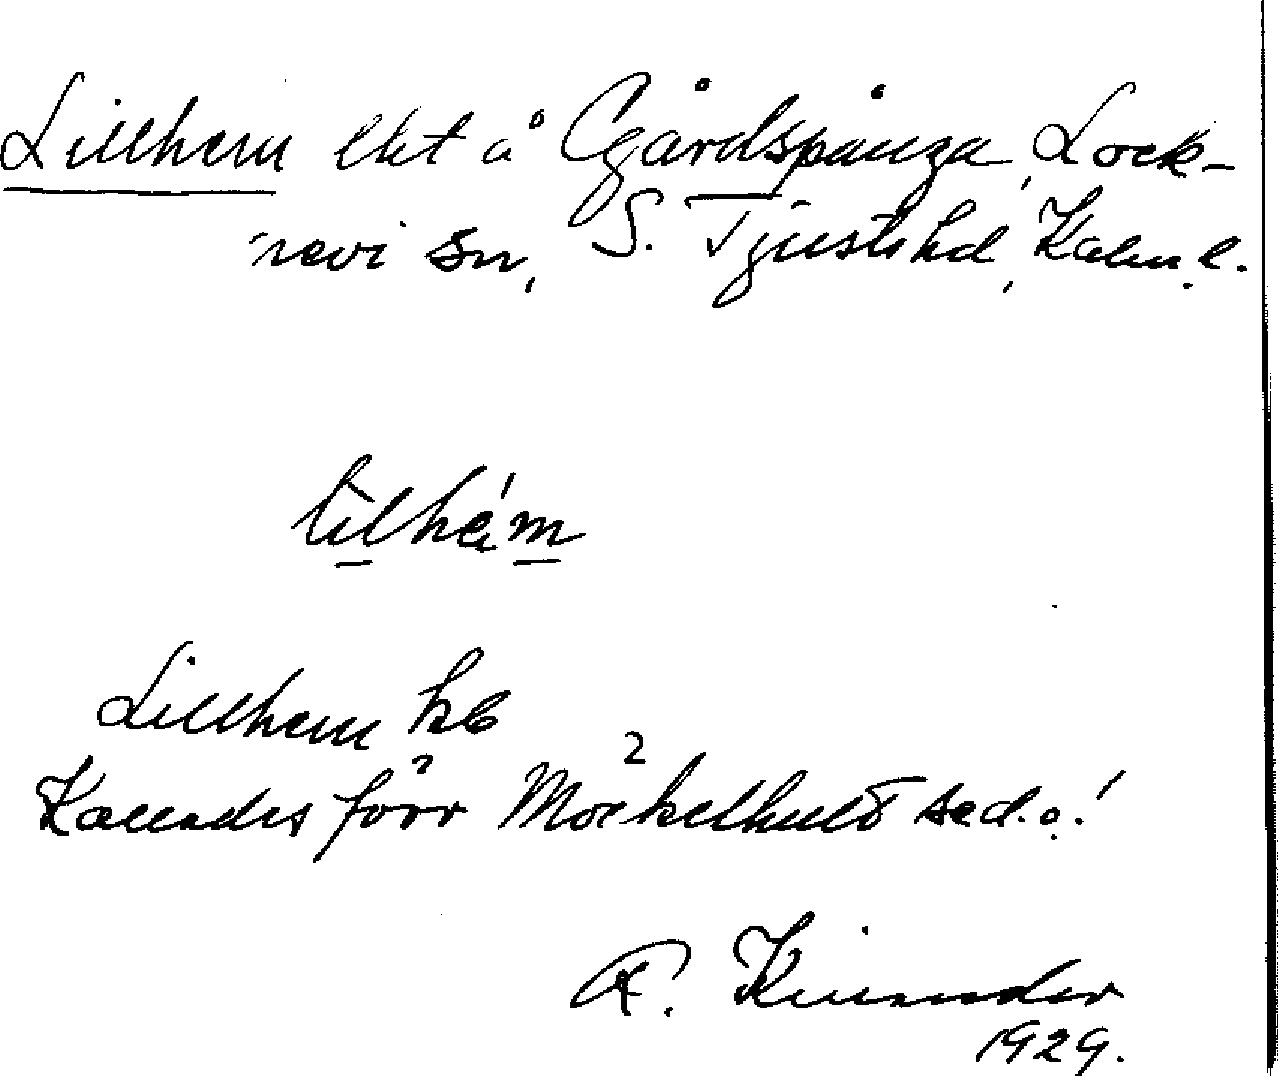 Lillhem lht å Gårdspånga, Lock-
nevi sn, S. Tjusts hd, Kalm. l.
lilhem
Lillhem kb
Kallades förr Möckelhult se d.o.!
A. Kinander
1929.